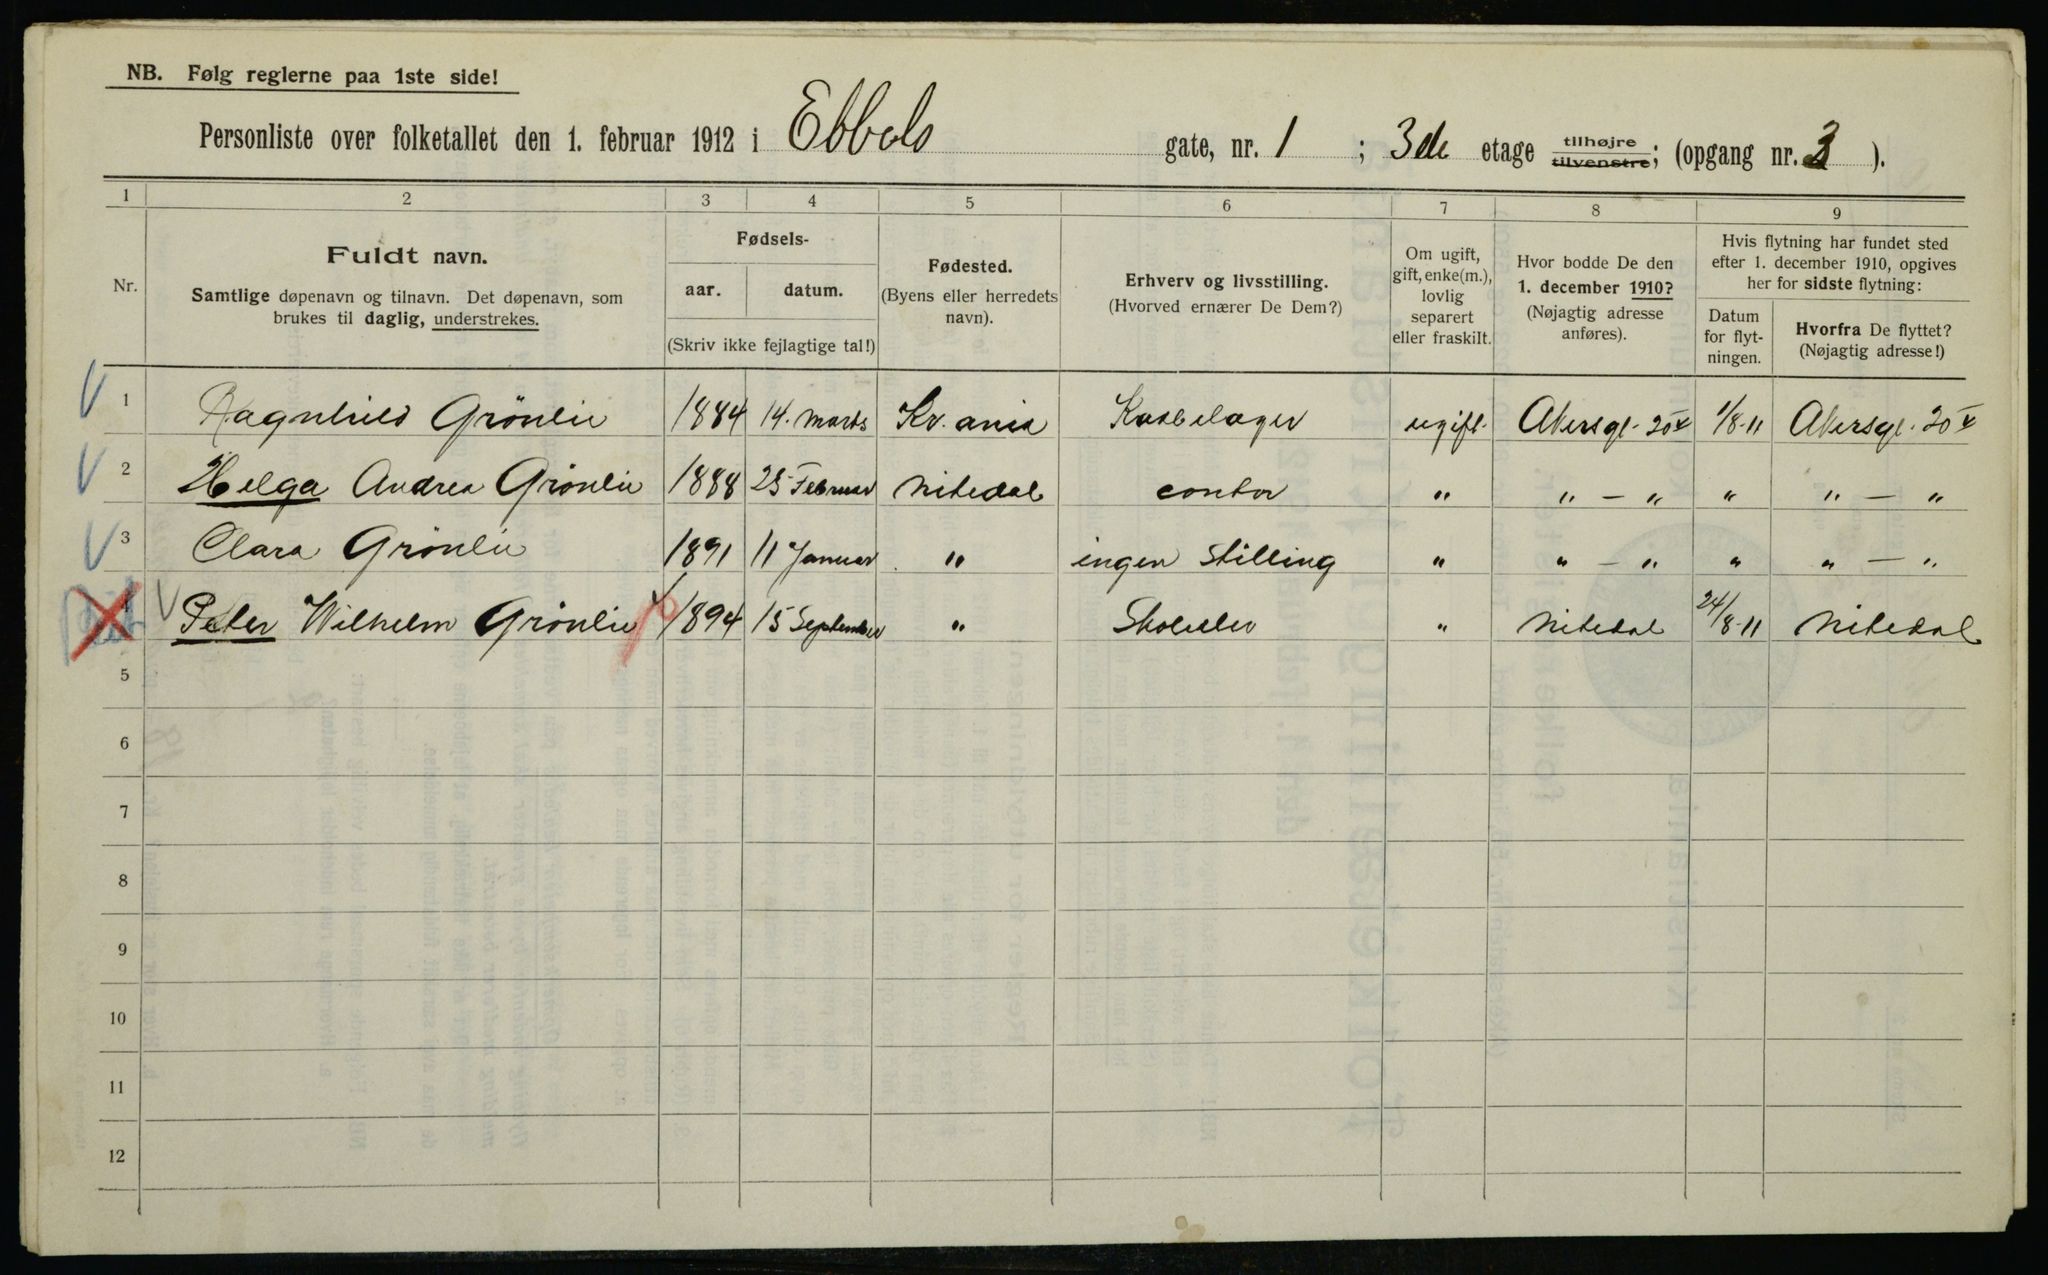 NB. Følg reglerne paa 1ste side!
Personliste over folketallet den 1. februar 1912 i Ebbels gate, nr. 1 ; 3de etage tilhøjre tilvenstre; (opgang nr. 3 ).
1 2 3 4 5 6 7 8 9
Nr.
Fuldt navn.
Samtlige døpenavn og tilnavn. Det døpenavn, som
brukes til daglig, understrekes.
Fødsels-
aar. datum.
(Skriv ikke fejlagtige tal!)
Fødested.
(Byens eller herredets
navn).
Erhverv og livsstilling.
(Hvorved ernærer De Dem?)
Om ugift,
gift, enke(m.),
lovlig
separert
eller fraskilt.
Hvor bodde De den
1. december 1910?
(Nøjagtig adresse
anføres).
Hvis flytning har fundet sted
efter 1. december 1910, opgives
her for sidste flytning:
Datum
for flyt-
ningen.
Hvorfra De flyttet?
(Nøjagtig adresse!)
1 Ragnhild Grönlie 1884 14. Marts Kr.ania ugift Akersgt. 20 1/8-11 Akersgt. 20
2 Helga Andrea Grönlie 1888 25 Februar Nitedal contor " " — " " " — "
3 Clara Grönlie 1891 11 Januar " ingen Stilling " " — " " " — "
4 Peter Wilhelm Grönlie 1894 15 September " Skoleelev " Nitedal 24/8-11 Nitedal
5
6
7
8
9
10
11
12